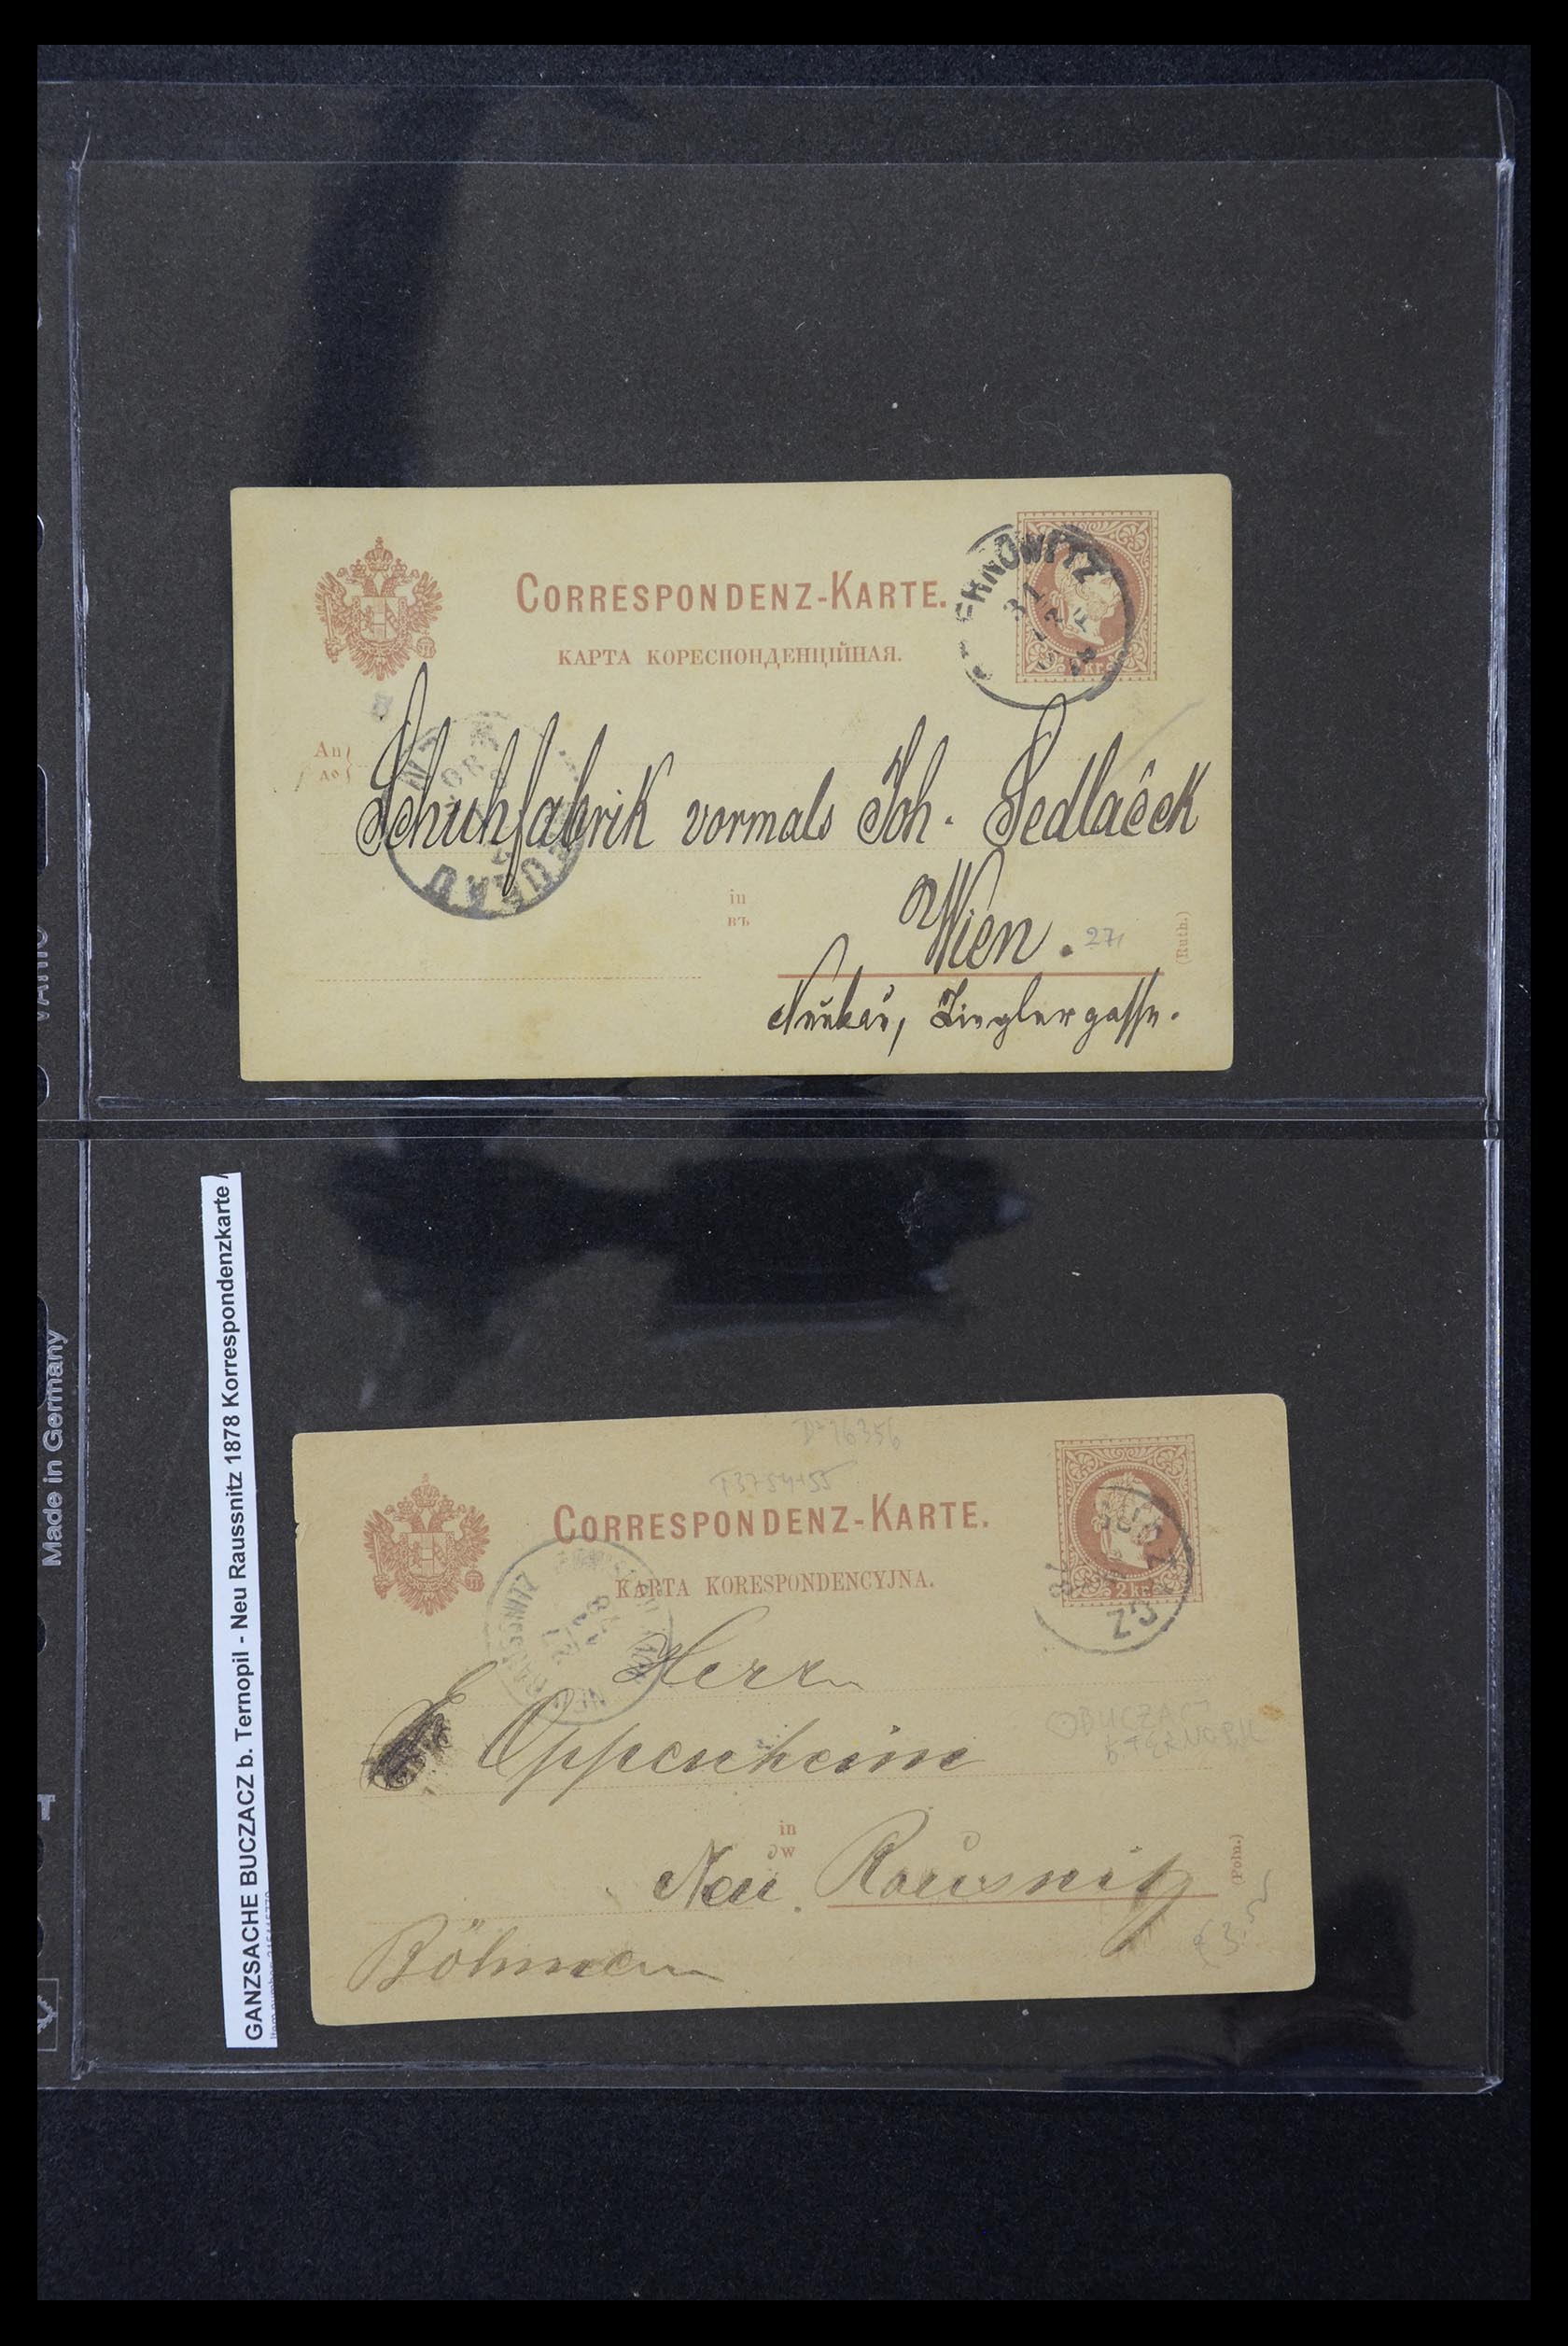 CORRESPONDENZ-KARTE.
КАРТА КОРЕСПОНДЕНЦІЙНАЯ.
ERNOWITZ
31
An
до
Schuhfabrik vormals Joh. Sedlaček
in
въ
Wien.
27
(Ruth.)
Neubau, Zieglergasse.
NEUBAU
Made in Germany
GANZSACHE BUCZACZ b. Ternopil - Neu Raussnitz 1878 Korrespondenzkarte /
D-16356
CORRESPONDENZ-KARTE.
KARTA KORESPONDENCYJNA.
2 kr
CZ
78
Herrn
E Oppenheim
BUCZACZ
in
w
Neu Rausnitz
(Poln.)
Böhmen